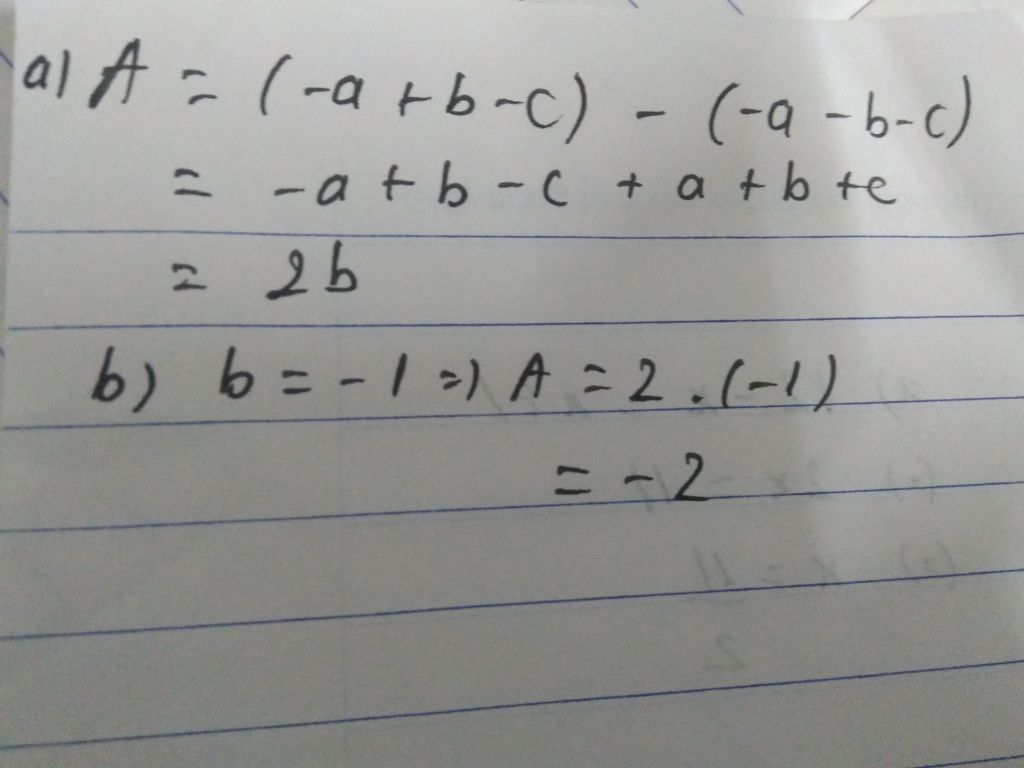 a) A = (-a + b - c) - (-a - b - c)
= -a + b - c + a + b + c
= 2b
b) b = -1 => A = 2 . (-1)
= -2